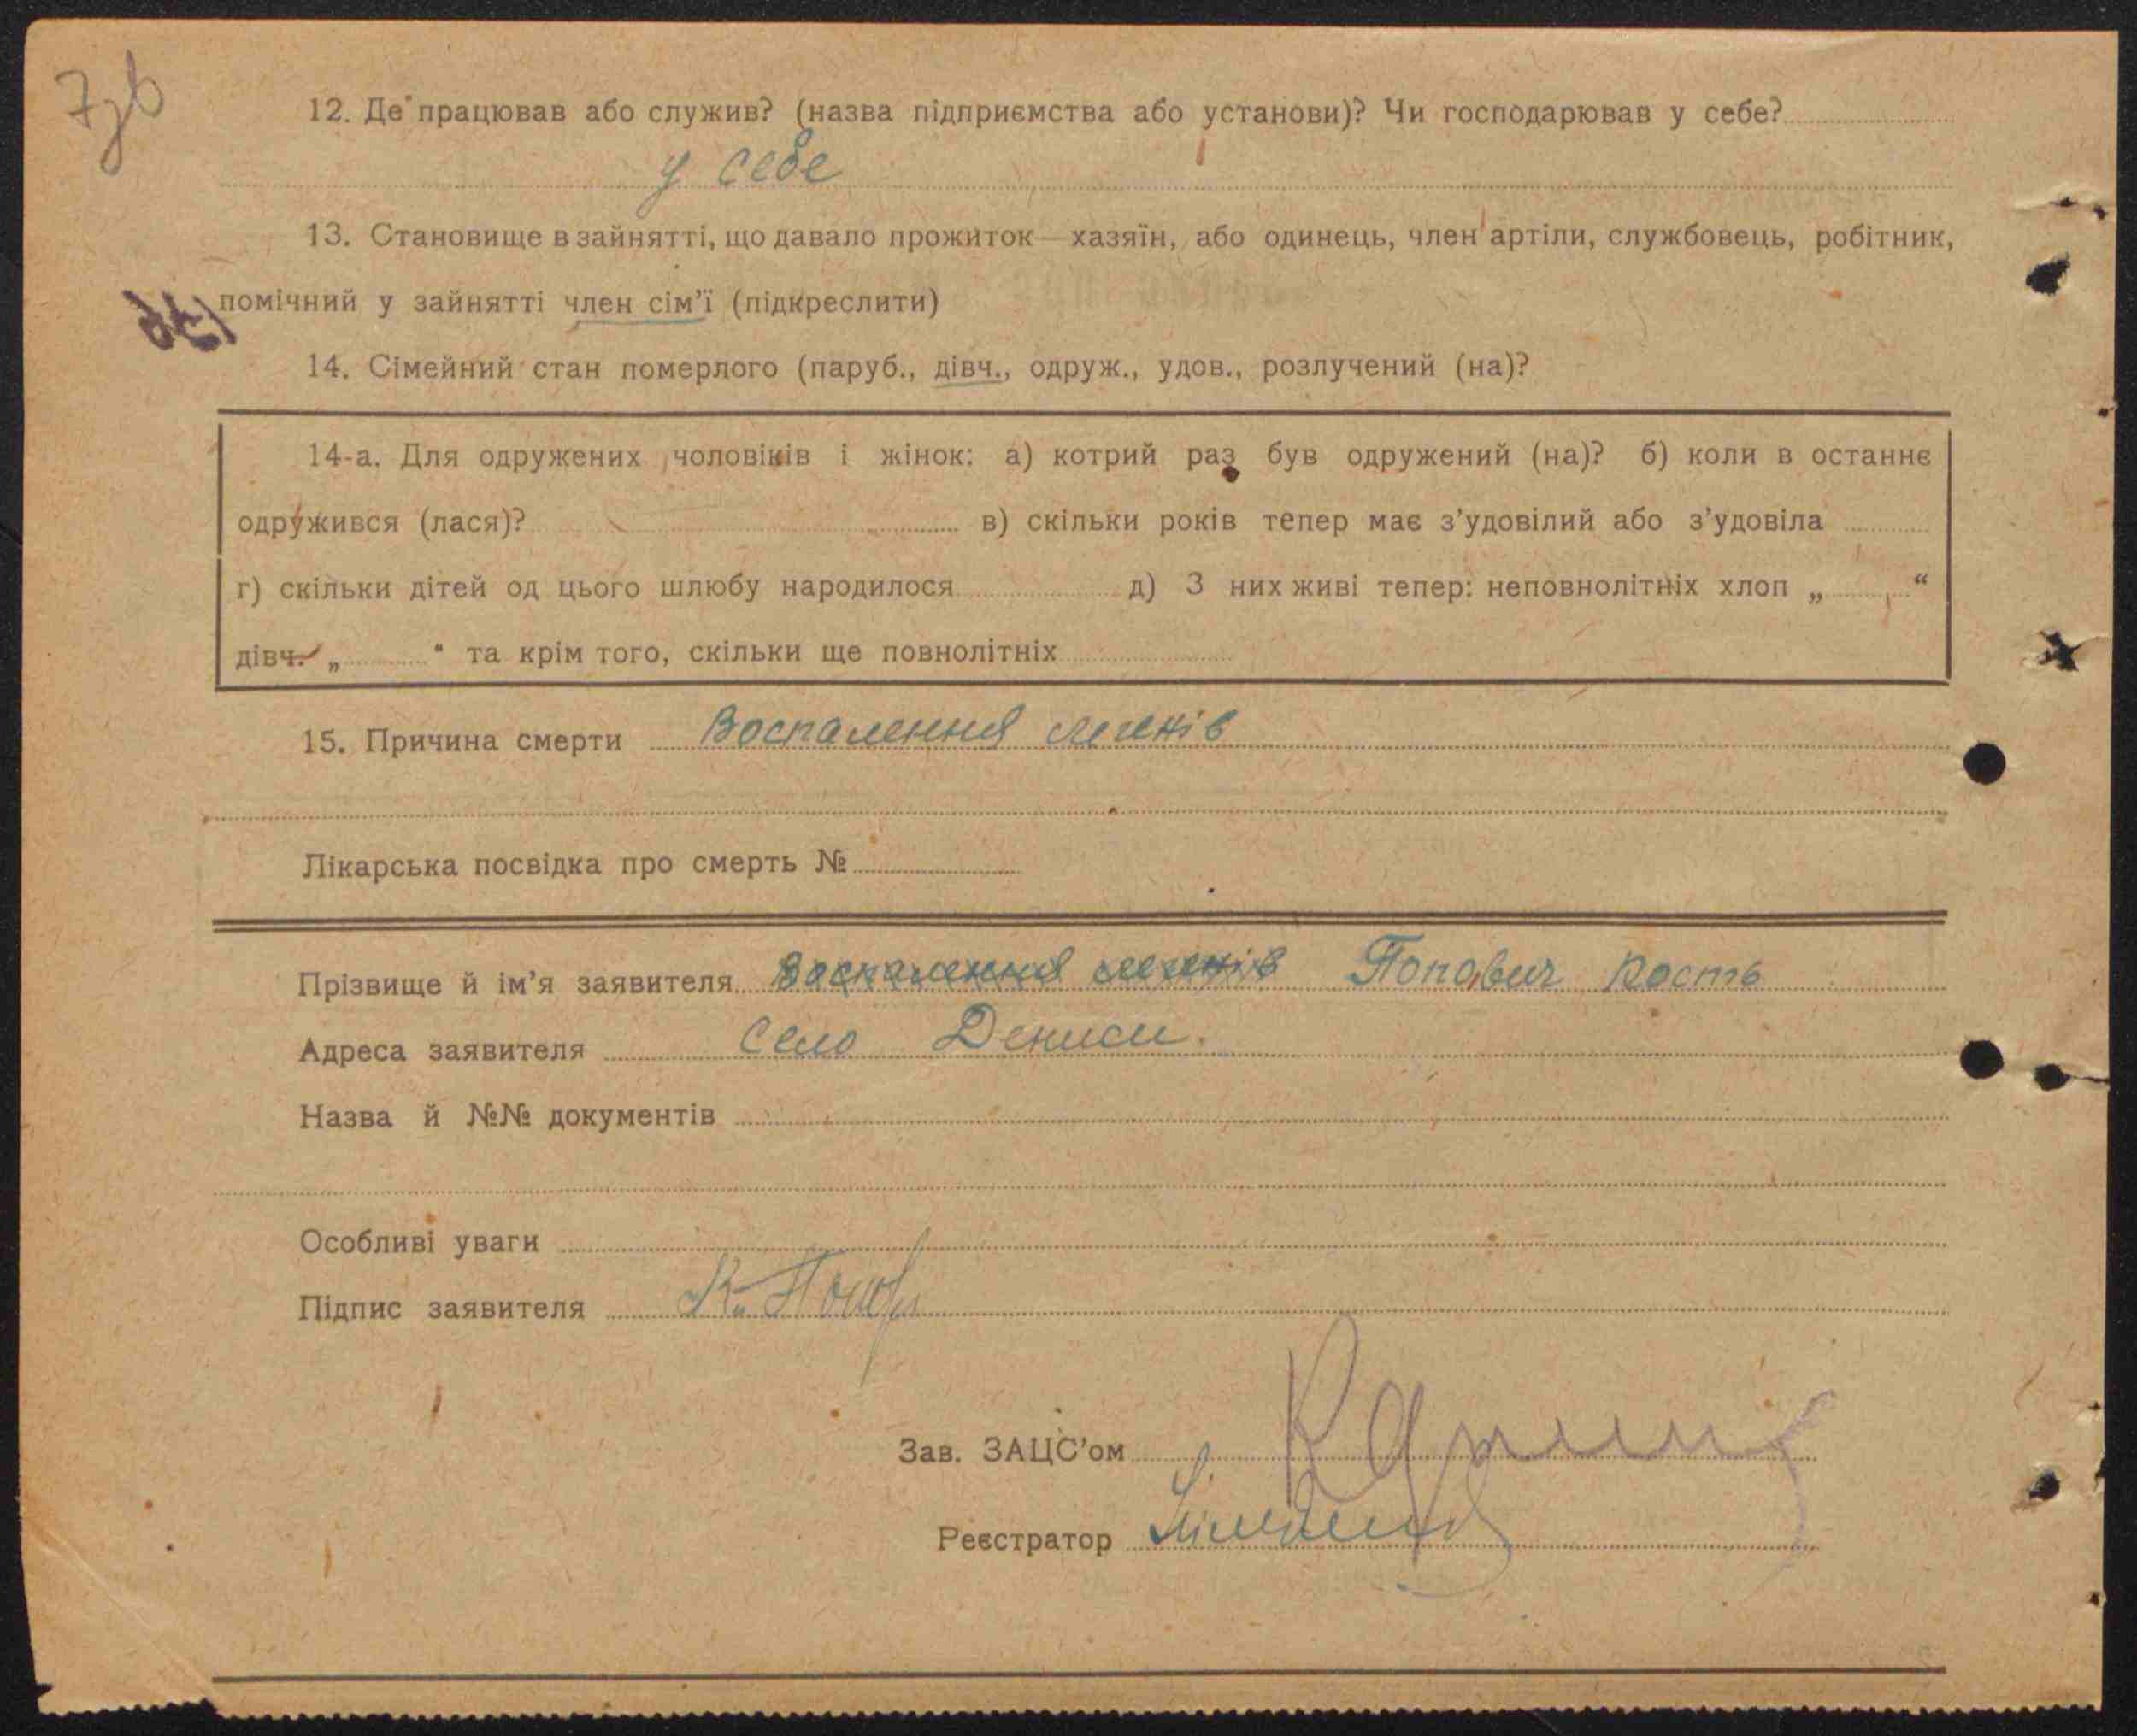 12. Де працював або служив? (назва підприємства або установи)? Чи господарював у себе?
у себе
13. Становище в зайнятті, що давало прожиток—хазяїн, або одинець, член артіли, службовець, робітник,
помічний у зайнятті член сім'ї (підкреслити)
14. Сімейний стан померлого (паруб., дівч., одруж., удов., розлучений (на)?
14-а. Для одружених чоловіків і жінок: а) котрий раз був одружений (на)? б) коли в останнє
одружився (лася)? в) скільки років тепер має з'удовілий або з'удовіла
г) скільки дітей од цього шлюбу народилося д) З них живі тепер: неповнолітніх хлоп „ “
дівч. „ “ та крім того, скільки ще повнолітніх
15. Причина смерти Воспалення легенів
Лікарська посвідка про смерть №
Прізвище й ім'я заявителя Воспалення легенів Попович Кость
Адреса заявителя село Дениси.
Назва й №№ документів
Особливі уваги
Підпис заявителя
Зав. ЗАЦС'ом
Реєстратор